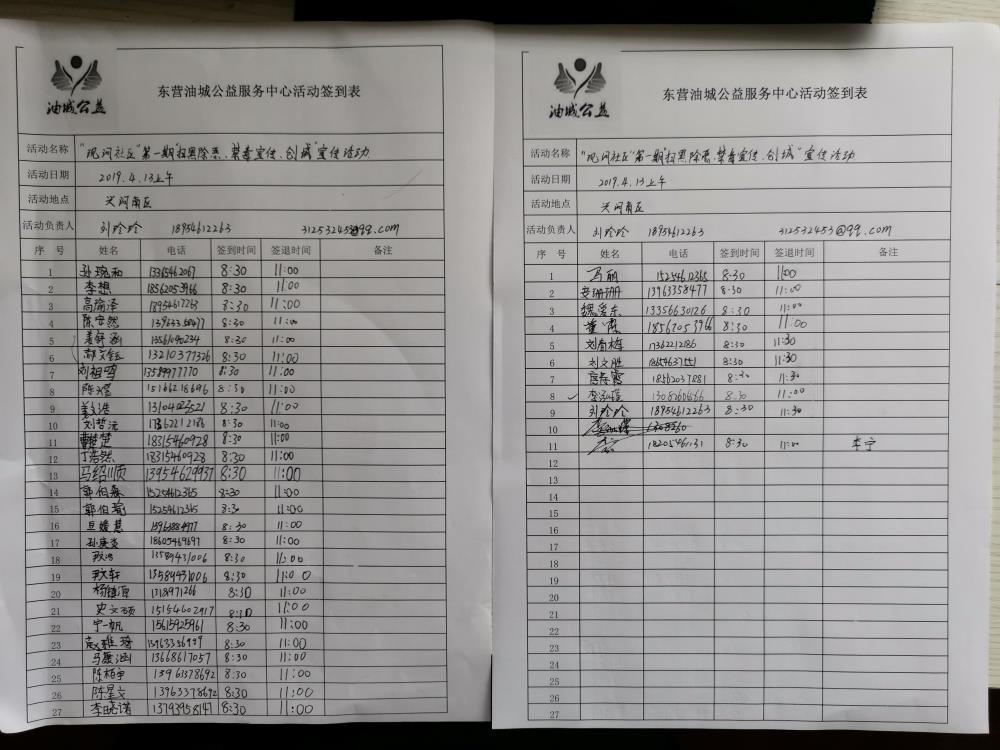 油城公益
东营油城公益服务中心活动签到表
活动名称 "现河社区"第一期"扫黑除恶、禁毒宣传、创城"宣传活动
活动日期 2019.4.13上午
活动地点 兴河南区
活动负责人 刘玲玲 18954612263 312532453@qq.com
序 号 姓名 电话 签到时间 签退时间 备注
1 孙琬和 13365462067 8:30 11:00
2 李想 18562053966 8:30 11:00
3 高瑜泽 18954612263 8:30 11:00
4 陈安然 13963358477 8:30 11:00
5 姜舒涵 13561090234 8:30 11:00
6 郝文钰 13210377326 8:30 11:00
7 刘祖鸣 13589977770 8:30 11:00
8 陈 15166218696 8:30 11:00
9 姜文浩 8:30 11:00
10 刘哲沅 17362212186 8:30 11:00
11 楚 18315460928 8:30 11:00
12 丁浩然 18315460928 8:30 11:00
13 马绍顺 13954629937 8:30 11:00
14 郭伯森 15254612365 8:30 11:00
15 郭伯瑜 15254612365 8:30 11:00
16 8:30 11:00
17 孙奕 18605469697 8:30 11:00
18 13589431006 8:30 11:00
19 轩 13589431006 8:30 11:00
20 杨健源 1318971266 8:30 11:00
21 史文硕 15154602917 8:30 11:00
22 宁一帆 15615925961 8:30 11:00
23 赵雅琦 13963356999 8:30 11:00
24 马 涵 13668617057 8:30 11:00
25 陈柏宇 13961378692 8:30 11:00
26 陈星文 13963378692 8:30 11:00
27 李晓诺 13793958147 8:30 11:00
油城公益
东营油城公益服务中心活动签到表
活动名称 "现河社区"第一期"扫黑除恶、禁毒宣传、创城"宣传活动
活动日期 2019.4.13上午
活动地点 兴河南区
活动负责人 刘玲玲 18954612263 312532453@qq.com
序 号 姓名 电话 签到时间 签退时间 备注
1 马丽 15254612365 8:30 11:00
2 安珊珊 13963358477 8:30 11:00
3 魏爱东 13356630126 8:30 11:00
4 董霞 18562053966 8:30 11:00
5 刘春梅 17362212186 8:30 11:30
6 刘文胜 18654637551 8:30 11:30
7 霞 18562037881 8:30 11:30
8 13082600666 8:30 11:00
9 刘玲玲 18954612263 8:30 11:30
10
11 18205461131 8:30 11:00 李宁
12
13
14
15
16
17
18
19
20
21
22
23
24
25
26
27